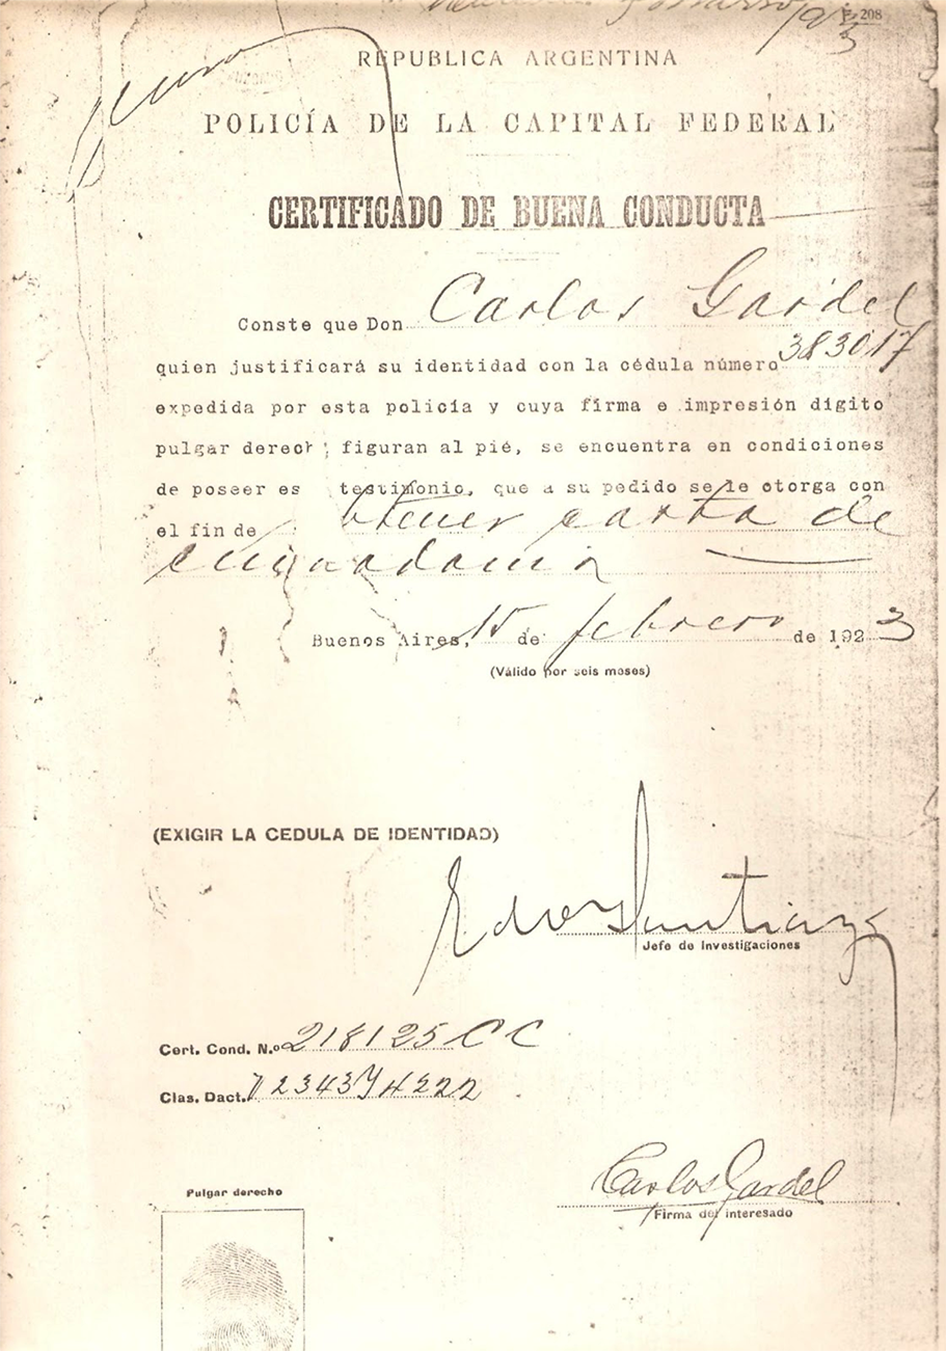 1923
F. 208
REPUBLICA ARGENTINA
POLICÍA DE LA CAPITAL FEDERAL
CERTIFICADO DE BUENA CONDUCTA
Conste que Don Carlos Gardel
quien justificará su identidad con la cédula número 383017
expedida por esta policía y cuya firma e impresión dígito
pulgar derech figuran al pié, se encuentra en condiciones
de poseer es testimonio, que a su pedido se le otorga con
el fin de obtener carta de
ciudadania
Buenos Aires, 15 de febrero de 1923
(Válido por seis meses)
(EXIGIR LA CEDULA DE IDENTIDAD)
Santiago
Jefe de Investigaciones
Cert. Cond. N.º 218125 CC
Clas. Dact. V2343 Y4222
Carlos Gardel
Pulgar derecho
Firma del interesado